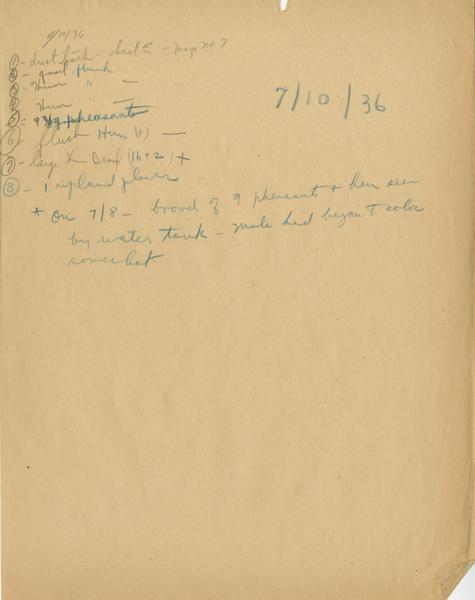 7/10/36
① - dust bath - Sect E - Map no 7
② - quail flush
③ - Hun " -
④ Hun " -
⑤ = pheasants
⑥ flush Hun (1) —
⑦ - large Hun Brood (16+2) +
⑧ - 1 upland plover
7/10/36
* On 7/8 - brood of 9 pheasants + hen seen
by water tank - male had begun T color
somewhat